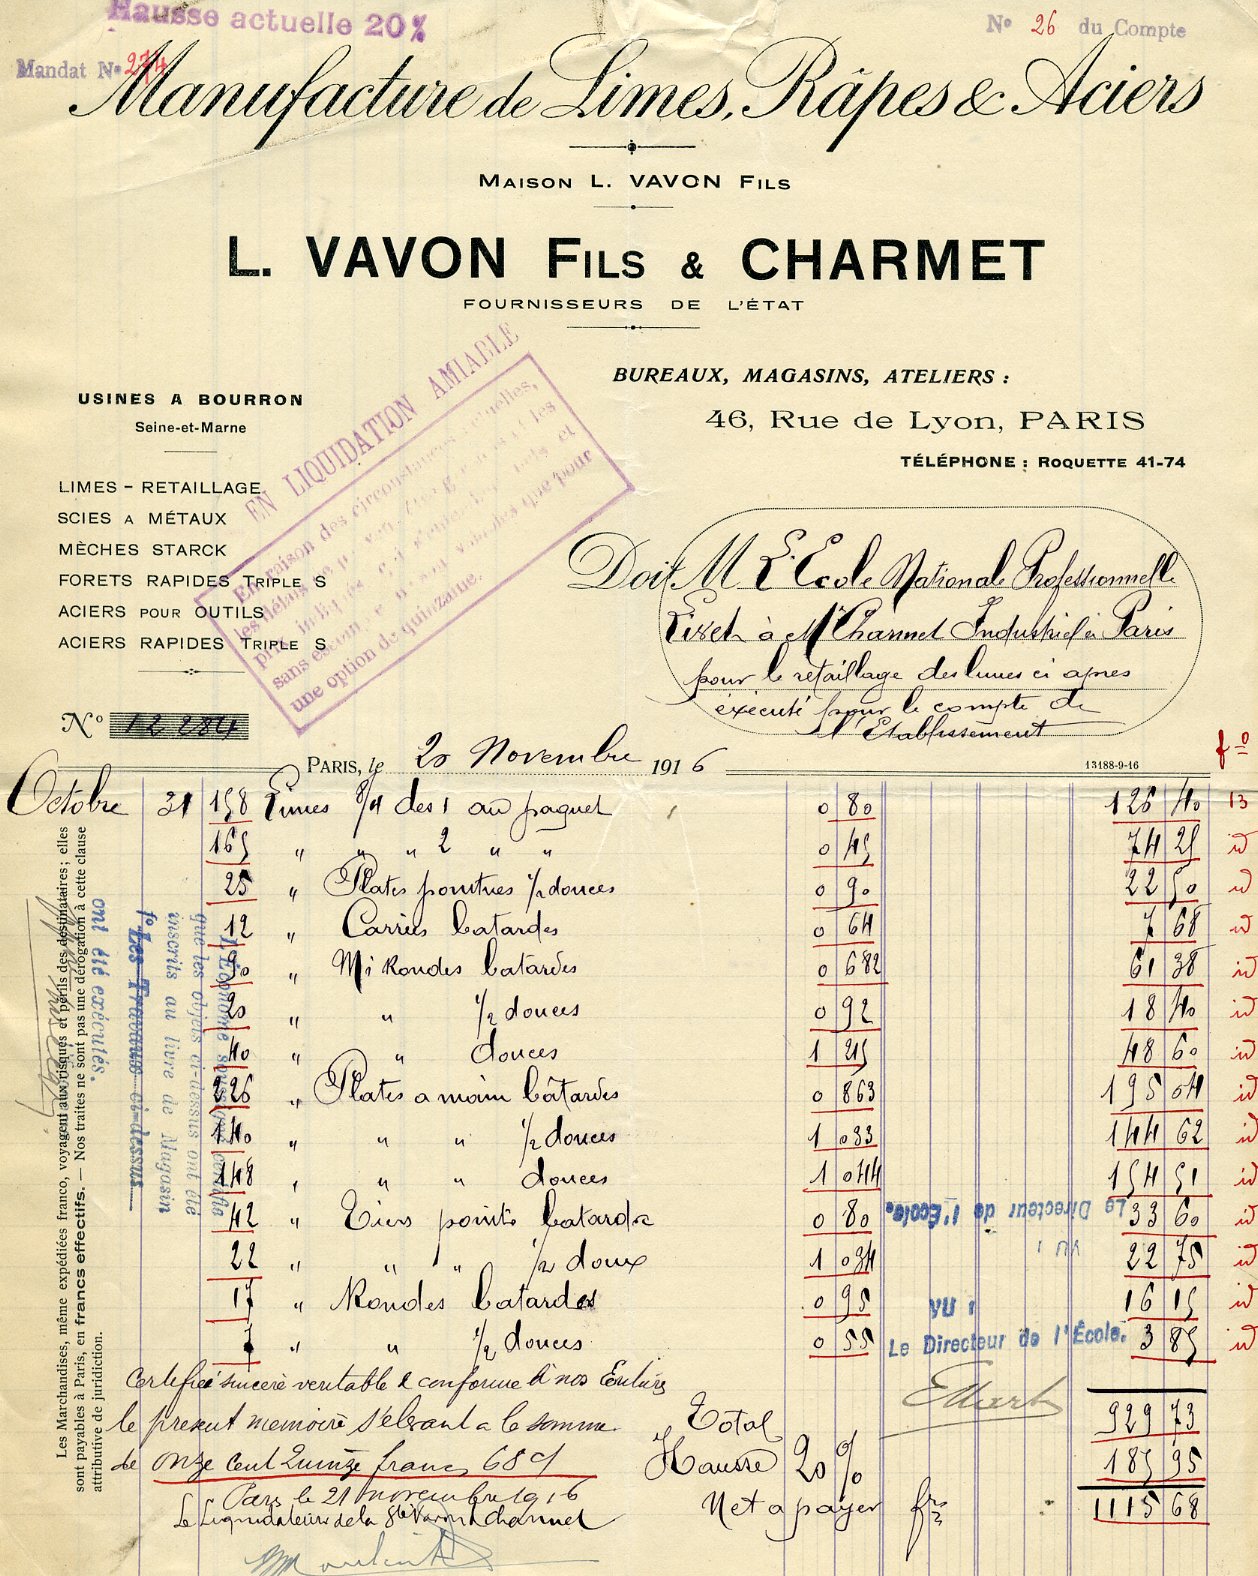 Hausse actuelle 20%
Nº 26 du Compte
Mandat Nº 274
Manufacture de Limes, Râpes & Aciers
MAISON L. VAVON FILS
L. VAVON FILS & CHARMET
FOURNISSEURS DE L'ÉTAT
EN LIQUIDATION AMIABLE
En raison des circonstances actuelles,
les délais de
sans
une option de quinzaine.
BUREAUX, MAGASINS, ATELIERS :
46, Rue de Lyon, PARIS
TÉLÉPHONE : ROQUETTE 41-74
USINES A BOURRON
Seine-et-Marne
LIMES - RETAILLAGE
SCIES A MÉTAUX
MÈCHES STARCK
FORETS RAPIDES TRIPLE S
ACIERS POUR OUTILS
ACIERS RAPIDES TRIPLE S
Doit M L'Ecole Nationale Professionnelle
à Mr Channet Industriel à Paris
pour le retaillage des limes ci apres
éxécuté pour le compte de
l'Etablissement
Nº 12 284
PARIS, le 20 Novembre 1916
13188-9-16
fº
Octobre 31 158 Limes 8/4 des 1 au paquet 0 80 126 40 13
165 " " " 2 " " 0 45 74 25 id
25 " Plates pointues 1/2 douces 0 90 22 50 id
12 " Carrées batardes 0 64 7 68 id
90 " Mi Rondes batardes 0 682 61 38 id
20 " " 1/2 douces 0 92 18 40 id
40 " " douces 1 215 48 60 id
226 " Plates a main bâtardes 0 863 195 04 id
140 " " " 1/2 douces 1 033 144 62 id
148 " " " douces 1 044 154 51 id
42 " Tiers points batardes 0 80 33 60 id
22 " " " 1/2 doux 1 034 22 75 id
17 " Rondes batardes 0 95 16 15 id
7 " " 1/2 douces 0 55 3 85 id
Le Directeur de l'Ecole.
VU :
VU :
Le Directeur de l'École.
Certifié sincere veritable & conforme à nos Ecritures
le present memoire s'élevant a la somme
de onze cent Quinze francs 68 c
Paris le 21 novembre 1916
Le Liquidateur de la Sté Vavon & Channet
Total 929 73
Hausse 20 % 185 95
Net a payer frs 1115 68
L'Économe soussigné certifie
que les objets ci-dessus ont été
inscrits au livre de Magasin
fº Les Travaux ci-dessus
ont été exécutés.
Les Marchandises, même expédiées franco, voyagent aux risques et périls des destinataires ; elles
sont payables à Paris, en francs effectifs. — Nos traites ne sont pas une dérogation à cette clause
attributive de juridiction.